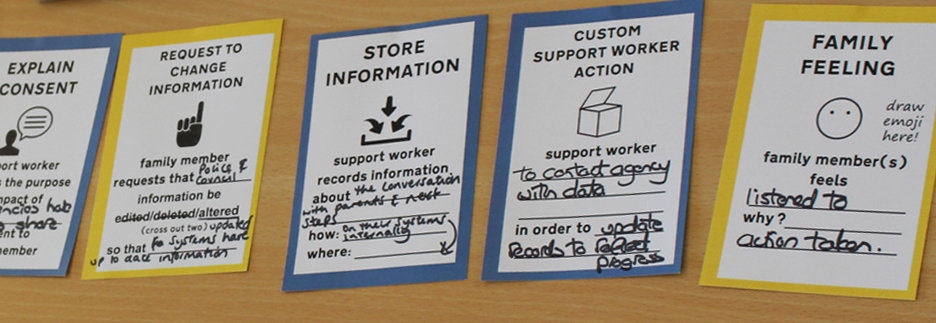 EXPLAIN
CONSENT
ort worker
s the purpose
mpact of
ncies hab
share
ent to
member
REQUEST TO
CHANGE
INFORMATION
family member
requests that Police &
Council
information be
edited/deleted/altered
(cross out two) updated
so that the systems have
up to date information
STORE
INFORMATION
support worker
records information
about the conversation
with parents & next
steps
how: on their systems
internally
where:
CUSTOM
SUPPORT WORKER
ACTION
support worker
to contact agency
with data
in order to update
records to reflect
progress
FAMILY
FEELING
draw
emoji
here!
family member(s)
feels
listened to
why?
action taken.